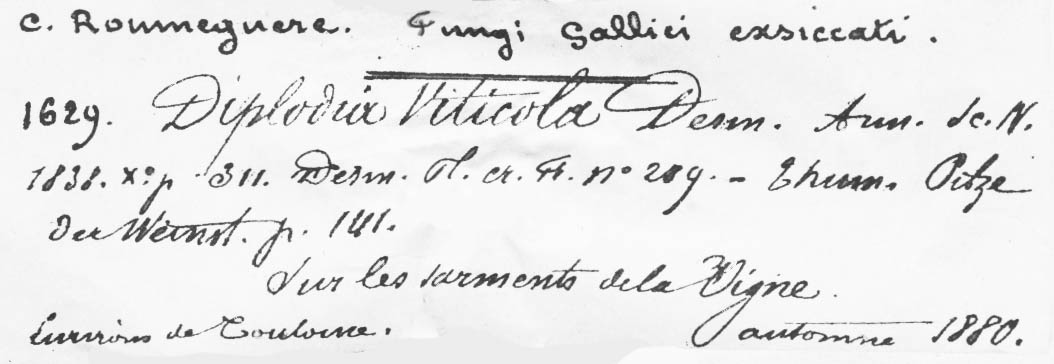 C. Roumeguere. Fungi Gallici exsiccati.
1629. Diplodia Viticola Desm. Ann. Sc. N.
1838. Xo. p. 311. Desm. Pl. cr. Fr. no 289. - Thum. Pilze
der Weinst. p. 141.
Sur les sarments de la Vigne.
Environs de Toulouse. automne 1880.